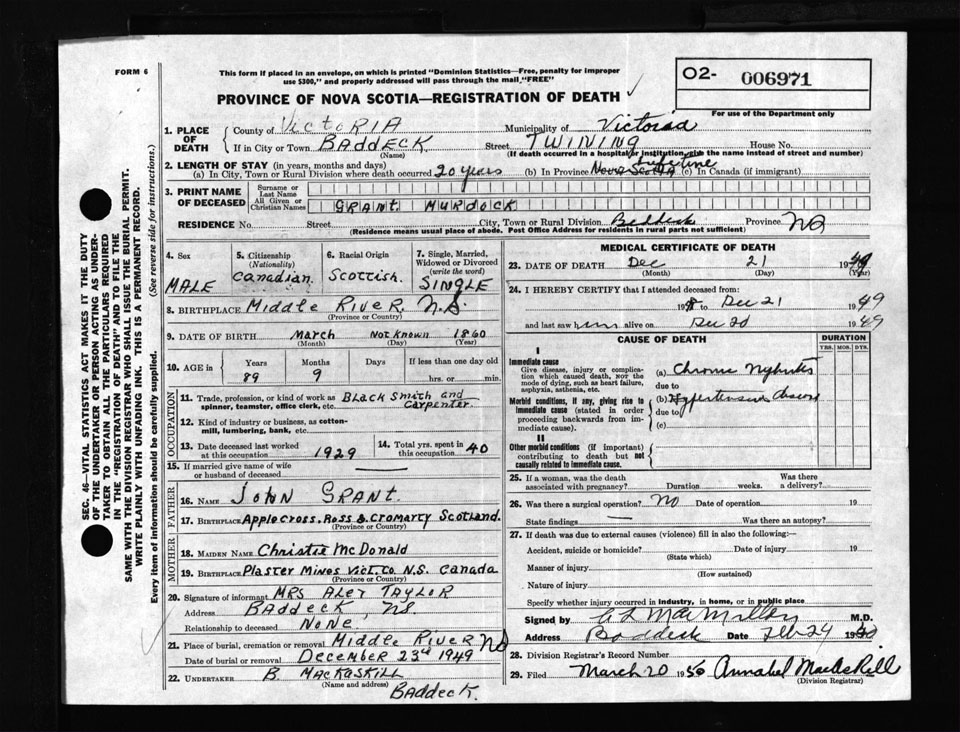 FORM 6
This form if placed in an envelope, on which is printed "Dominion Statistics—Free, penalty for improper
use $300," and properly addressed will pass through the mail "FREE"
PROVINCE OF NOVA SCOTIA—REGISTRATION OF DEATH
O2- 006971
For use of the Department only
1. PLACE OF DEATH
County of VICTORIA Municipality of Victoria
If in City or Town BADDECK Street TWINING House No.
(Name) (If death occurred in a hospital or institution, give the name instead of street and number)
2. LENGTH OF STAY (in years, months and days)
(a) In City, Town or Rural Division where death occurred 20 years (b) In Province Nova Scotia lifetime (c) In Canada (if immigrant)
3. PRINT NAME OF DECEASED
Surname or Last Name
All Given or Christian Names GRANT MURDOCK
RESIDENCE No. Street City, Town or Rural Division Baddeck Province NS
(Residence means usual place of abode. Post Office Address for residents in rural parts not sufficient)
4. Sex MALE
5. Citizenship (Nationality) Canadian
6. Racial Origin Scottish
7. Single, Married, Widowed or Divorced (write the word) SINGLE
8. BIRTHPLACE MIDDLE RIVER. N.S.
(Province or Country)
9. DATE OF BIRTH March Not Known 1860
(Month) (Day) (Year)
10. AGE in Years Months Days If less than one day old
89 9 hrs. or min.
OCCUPATION
11. Trade, profession, or kind of work as spinner, teamster, office clerk, etc. Black Smith and Carpenter
12. Kind of industry or business, as cotton-mill, lumbering, bank, etc.
13. Date deceased last worked at this occupation 1929
14. Total yrs. spent in this occupation 40
15. If married give name of wife or husband of deceased —
FATHER
16. NAME JOHN GRANT.
17. BIRTHPLACE Applecross. Ross & Cromarty Scotland.
(Province or Country)
MOTHER
18. MAIDEN NAME Christie McDonald
19. BIRTHPLACE Plaster Mines Vict. Co. N.S. Canada
(Province or Country)
20. Signature of informant MRS ALEX TAYLOR
Address BADDECK NS
Relationship to deceased NONE.
21. Place of burial, cremation or removal MIDDLE RIVER NS
Date of burial or removal December 23rd 1949
22. UNDERTAKER B. MACKASKILL
(Name and address)
BADDECK.
MEDICAL CERTIFICATE OF DEATH
23. DATE OF DEATH Dec 21 1949
(Month) (Day)
24. I HEREBY CERTIFY that I attended deceased from:
to Dec 21 1949
and last saw him alive on Dec 20 1949
CAUSE OF DEATH DURATION
YRS. MOS. DYS.
I
Immediate cause
Give disease, injury or complication which caused death, not the mode of dying, such as heart failure, asphyxia, asthenia, etc.
(a)
due to
Morbid conditions, if any, giving rise to immediate cause (stated in order proceeding backwards from immediate cause).
(b) Hypertension
due to
(c)
II
Other morbid conditions (if important) contributing to death but not causally related to immediate cause.
25. If a woman, was the death associated with pregnancy? Duration weeks. Was there a delivery?
26. Was there a surgical operation? No Date of operation 19
State findings — Was there an autopsy?
27. If death was due to external causes (violence) fill in also the following:—
Accident, suicide or homicide? Date of injury 19
(State which)
Manner of injury
(How sustained)
Nature of injury
Specify whether injury occurred in industry, in home, or in public place
Signed by C L MacMillan M.D.
Address Baddeck Date Feb 24 1950
28. Division Registrar's Record Number
29. Filed March 20 1950 Annabel MacAskill
(Division Registrar)
SEC. 46—VITAL STATISTICS ACT MAKES IT THE DUTY
OF THE UNDERTAKER OR PERSON ACTING AS UNDER-
TAKER TO OBTAIN ALL THE PARTICULARS REQUIRED
IN THE "REGISTRATION OF DEATH" AND TO FILE THE
SAME WITH THE DIVISION REGISTRAR WHO SHALL ISSUE THE BURIAL PERMIT.
WRITE PLAINLY WITH UNFADING INK. THIS IS A PERMANENT RECORD.
Every item of information should be carefully supplied. (See reverse side for instructions.)